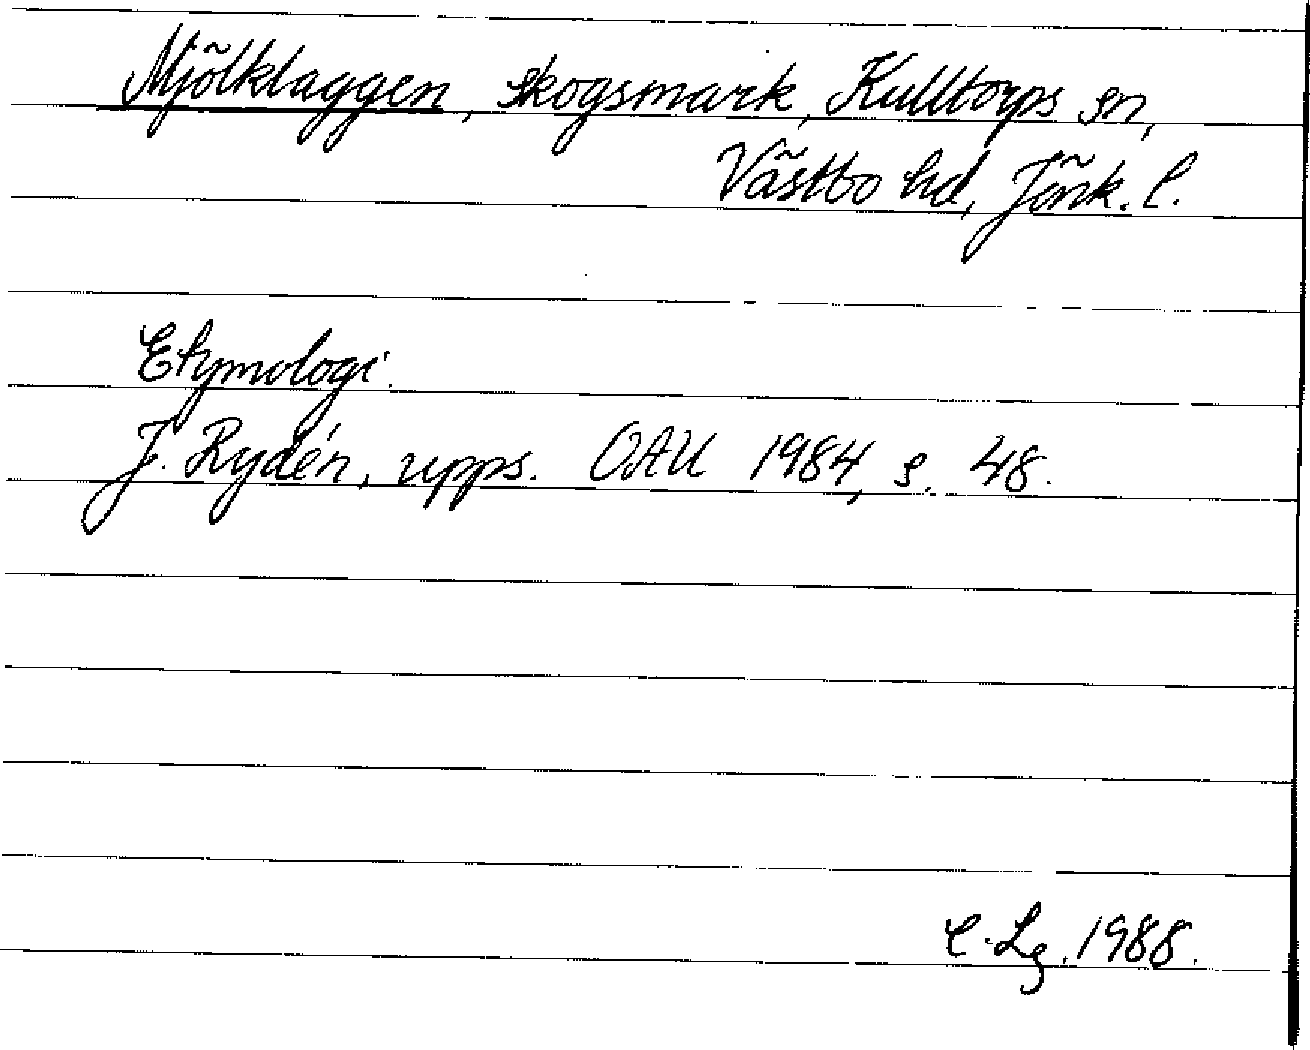 Mjölklaggen, skogsmark, Kulltorps sn,
Västbo hd, Jönk. l.
Etymologi.
J. Rydén, upps. OAU 1984, s. 48.
C. Lg. 1988.